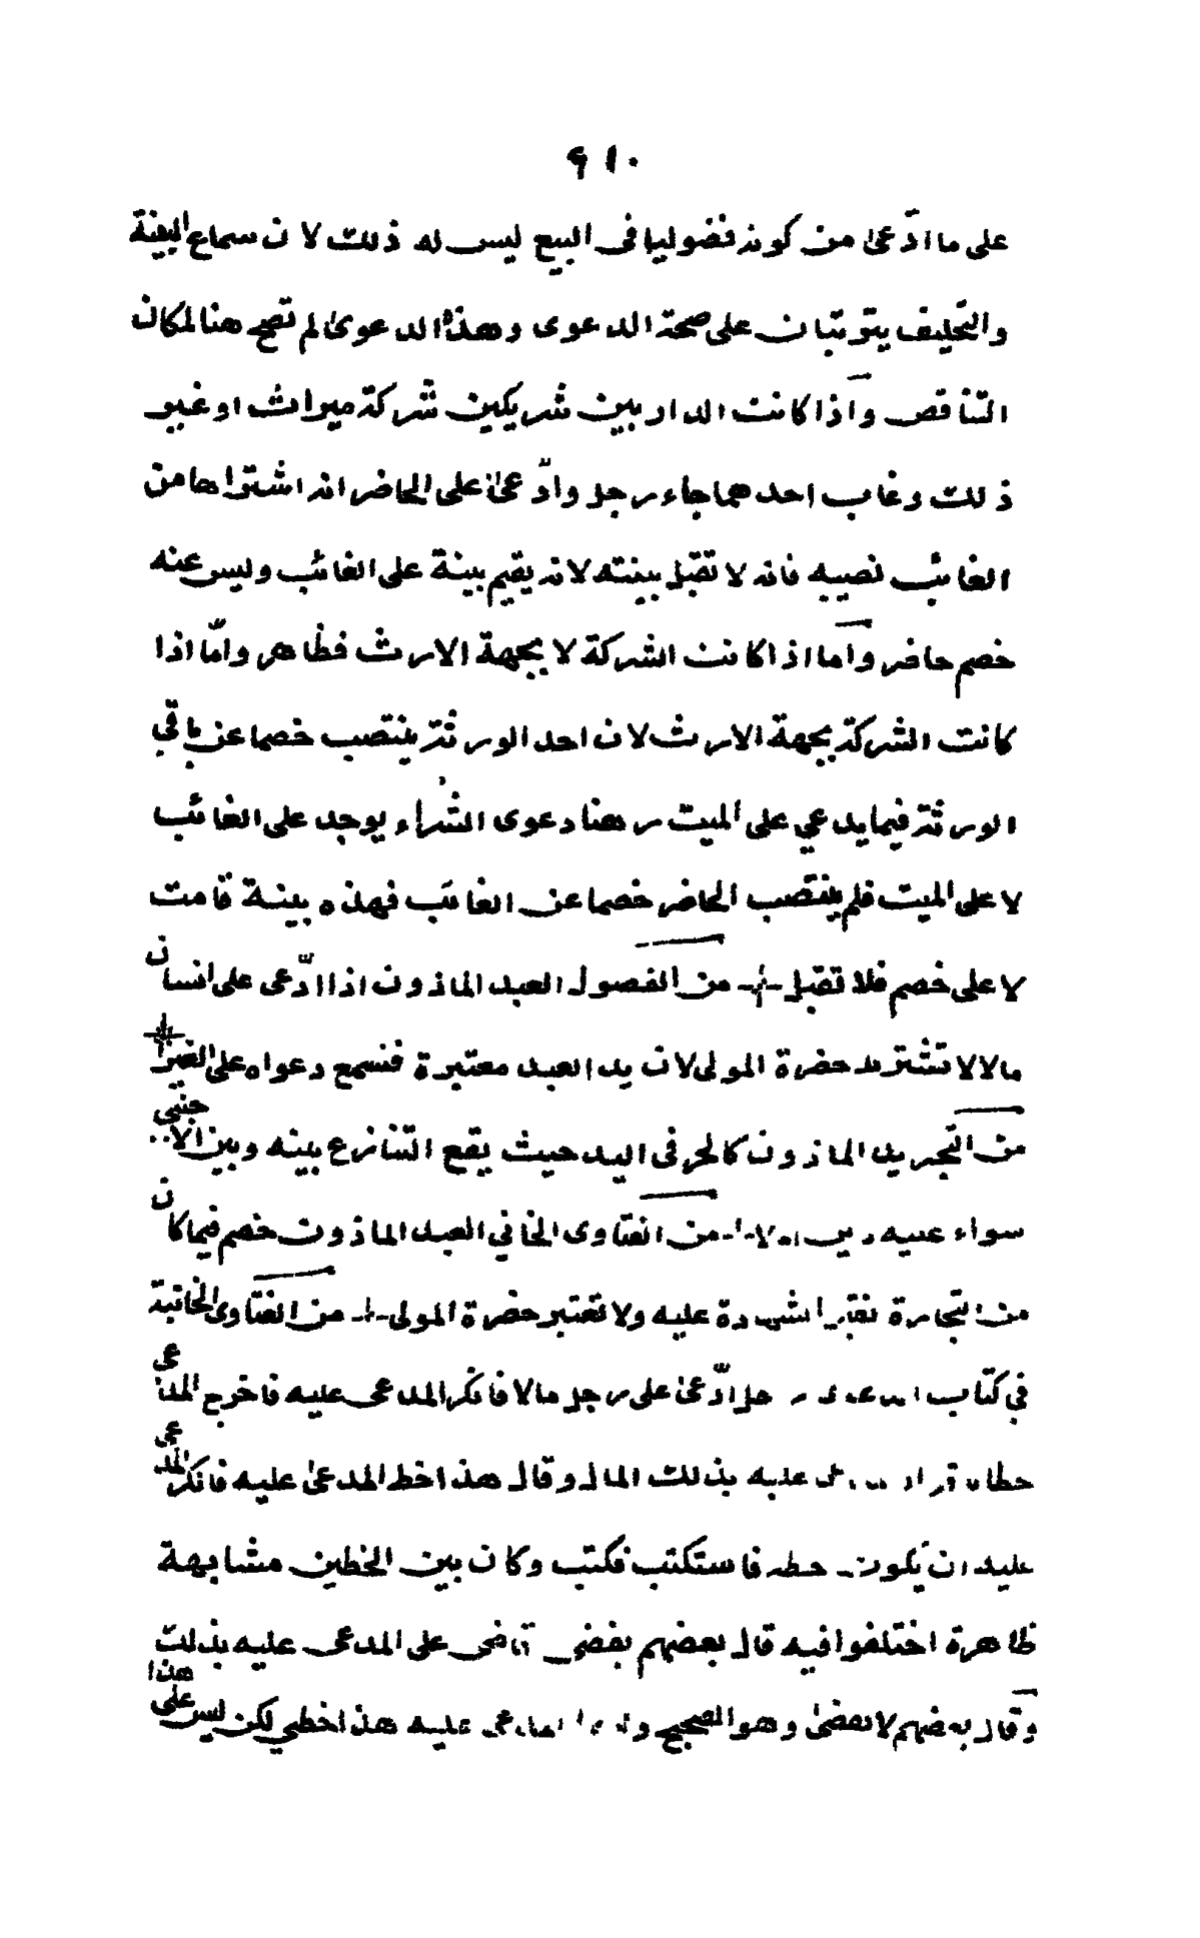 ٩١٠
على ما ادّعى من كونه فضوليا فى البيع ليس له ذلك لان سماع البينة
والتحليف يترتبان على صحة الدعوى وهذه الدعوى لم تصح هنا لمكان
التناقض واذا كانت الدار بين شريكين شركة ميراث او غير
ذلك وغاب احدهما جاء رجل وادّعى على الحاضر انه اشتراها من
الغائب نصيبه فانه لا تقبل بينته لانه يقيم بينة على الغائب وليس عنه
خصم حاضر واما اذا كانت الشركة لا بجهة الارث فظاهر وامّا اذا
كانت الشركة بجهة الارث لان احد الورثة ينتصب خصما عن باقي
الورثة فيما يدعي على الميت وهنا دعوى الشراء يوجد على الغائب
لا على الميت فلم ينتصب الحاضر خصما عن الغائب فهذه بينة قامت
لا على خصم فلا تقبل من الفصول العبد الماذون اذا ادّعى على انسان
مالا لا تشترط حضرة المولى لان يد العبد معتبرة فتسمع دعواه على الغير
من التجريد الماذون كالحر فى اليد حيث يقع التنازع بينه وبين الاجنبي
سواء عليه من الفتاوى الخاني العبد الماذون خصم فيما كان
من التجارة تقبل الشهادة عليه ولا تعتبر حضرة المولى من الفتاوى الخانية
في كتاب رجل ادّعى على رجل مالا فانكر المدعى عليه فاخرج المدعي
خطا عليه بذلك المال وقال هذا خط المدعى عليه فانكر المدعى
عليه ان يكون خطه فاستكتب فكتب وكان بين الخطين مشابهة
ظاهرة اختلفوا فيه قال بعضهم يقضى القاضى على المدعى عليه بذلك
وقال بعضهم لا يقضى وهو الصحيح ولو المدعى عليه هذا خطي لكن ليس على هذا